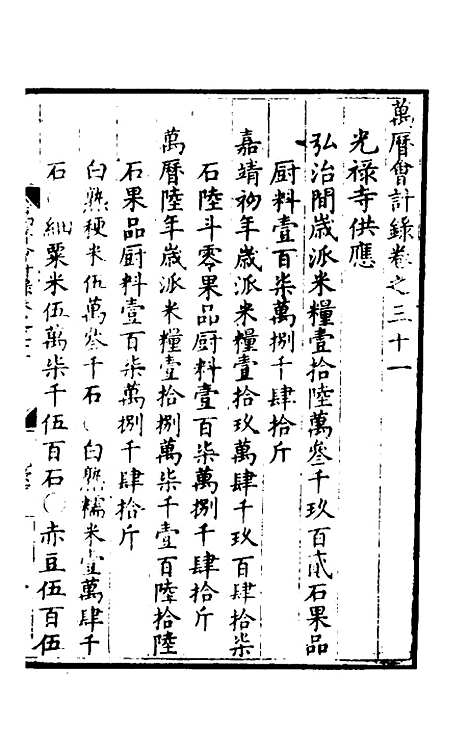 萬曆會計錄卷之三十一
光祿寺供應
弘治間歲派米糧壹拾陸萬叁千玖百貳石果品
廚料壹百柒萬捌千肆拾斤
嘉靖初年歲派米糧壹拾玖萬肆千玖百肆拾柒
石陸斗零果品廚料壹百柒萬捌千肆拾斤
萬曆陸年歲派米糧壹拾捌萬柒千壹百陸拾陸
石果品廚料壹百柒萬捌千肆拾斤
白熟粳米伍萬叁千石○白熟糯米壹萬肆千
石○細粟米伍萬柒千伍百石○赤豆伍百伍